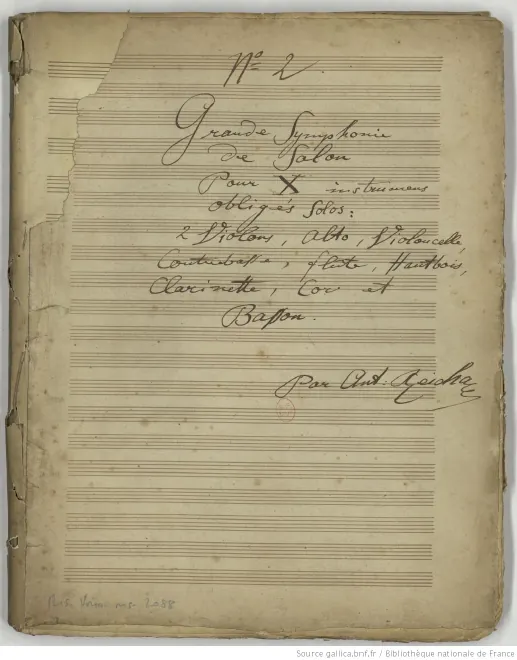 Nº 2.
Grande Symphonie
de Salon
Pour X instrumens
obligés Solos:
2 Violons, Alto, Violoncelle,
Contrebasse, flûte, Hautbois,
Clarinette, Cor et
Basson.
Par Ant: Reicha
ms. 2088
Source gallica.bnf.fr / Bibliothèque nationale de France